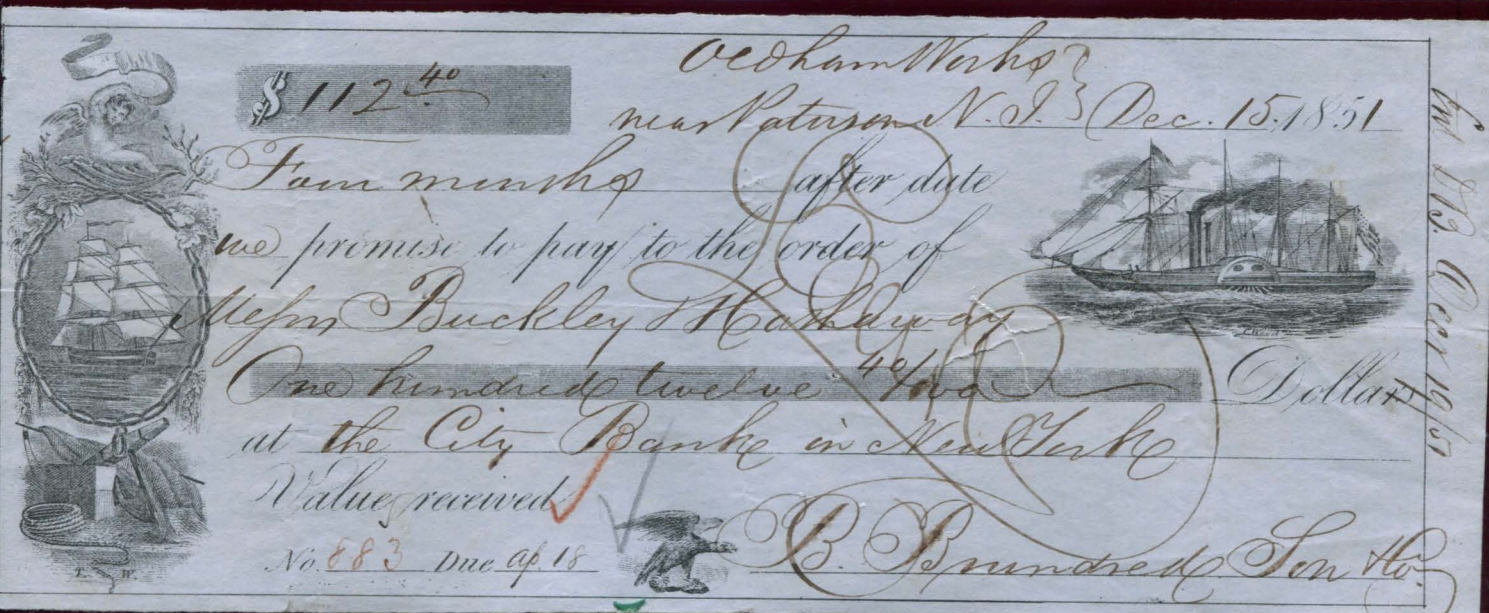 $ 112 40
Oldham Works
near Paterson N. J. Dec. 15. 1851
Four months after date
we promise to pay to the order of
Messrs Buckley & Hathaway
One hundred twelve 40/100 Dollars
at the City Bank in New York
Value received
No. 883 Due Ap 18
B. Brundred Son & Co.
Dec 19/51
E. W.